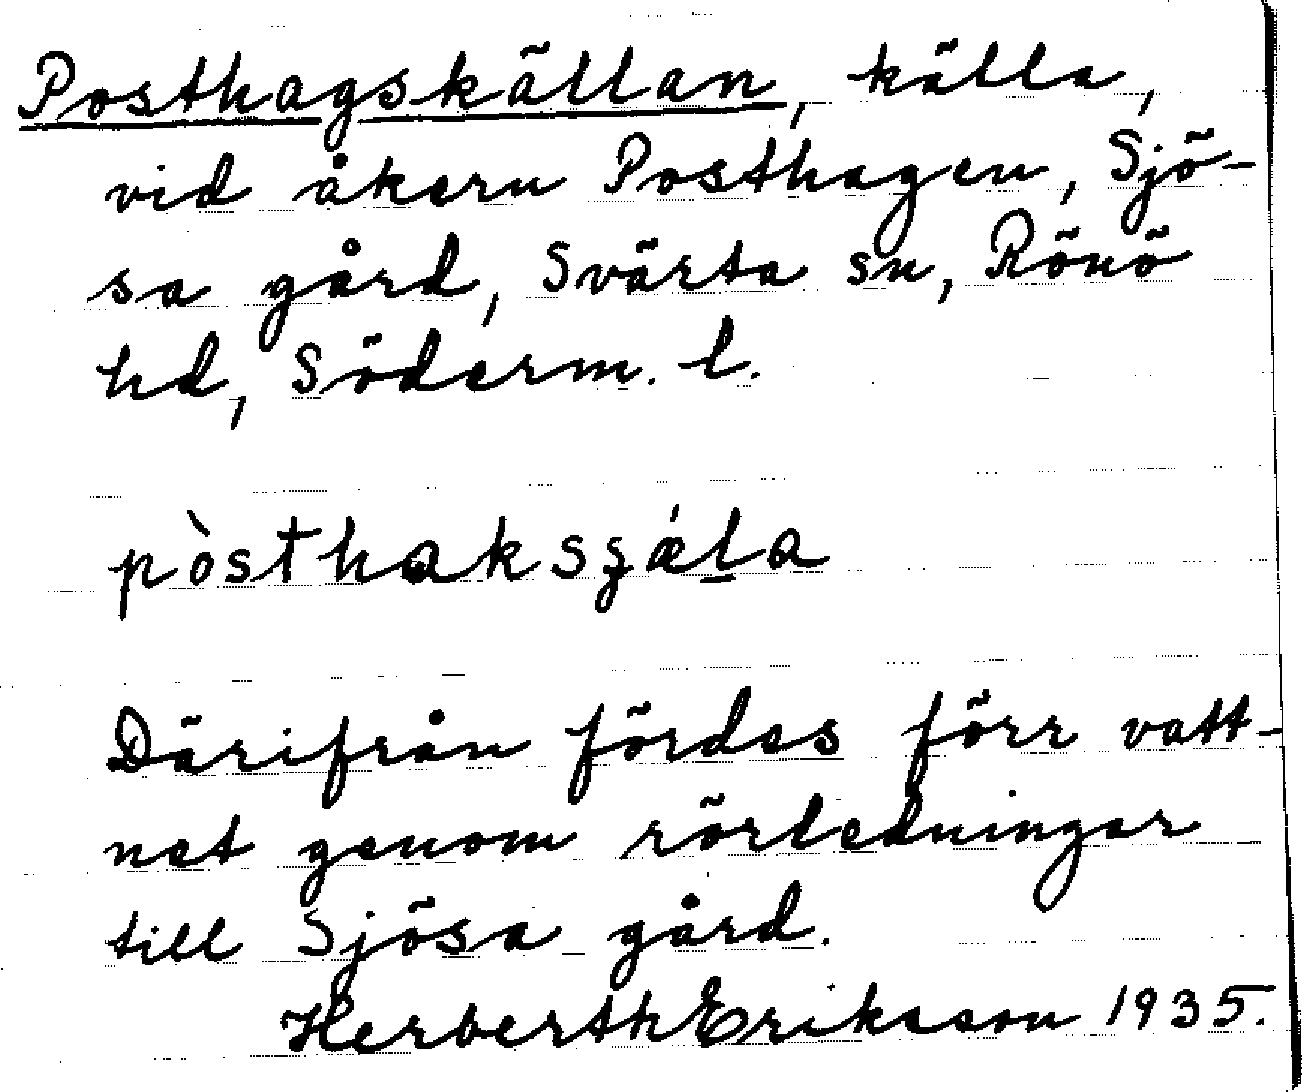 Posthagskällan, källa,
vid åkern Posthagen, Sjö-
sa gård, Svärta sn, Rönö
hd, Söderm. l.
pòsthaksʓǽla
Därifrån fördes förr vatt-
net genom rörledningar
till Sjösa gård.
Herberth Eriksson 1935.